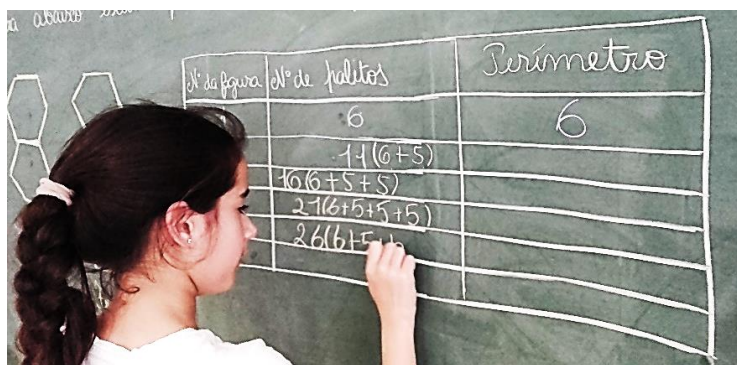 abaixo
Nº da figura Nº de palitos Perímetro
6 6
11(6+5)
16(6+5+5)
21(6+5+5+5)
26(6+5+